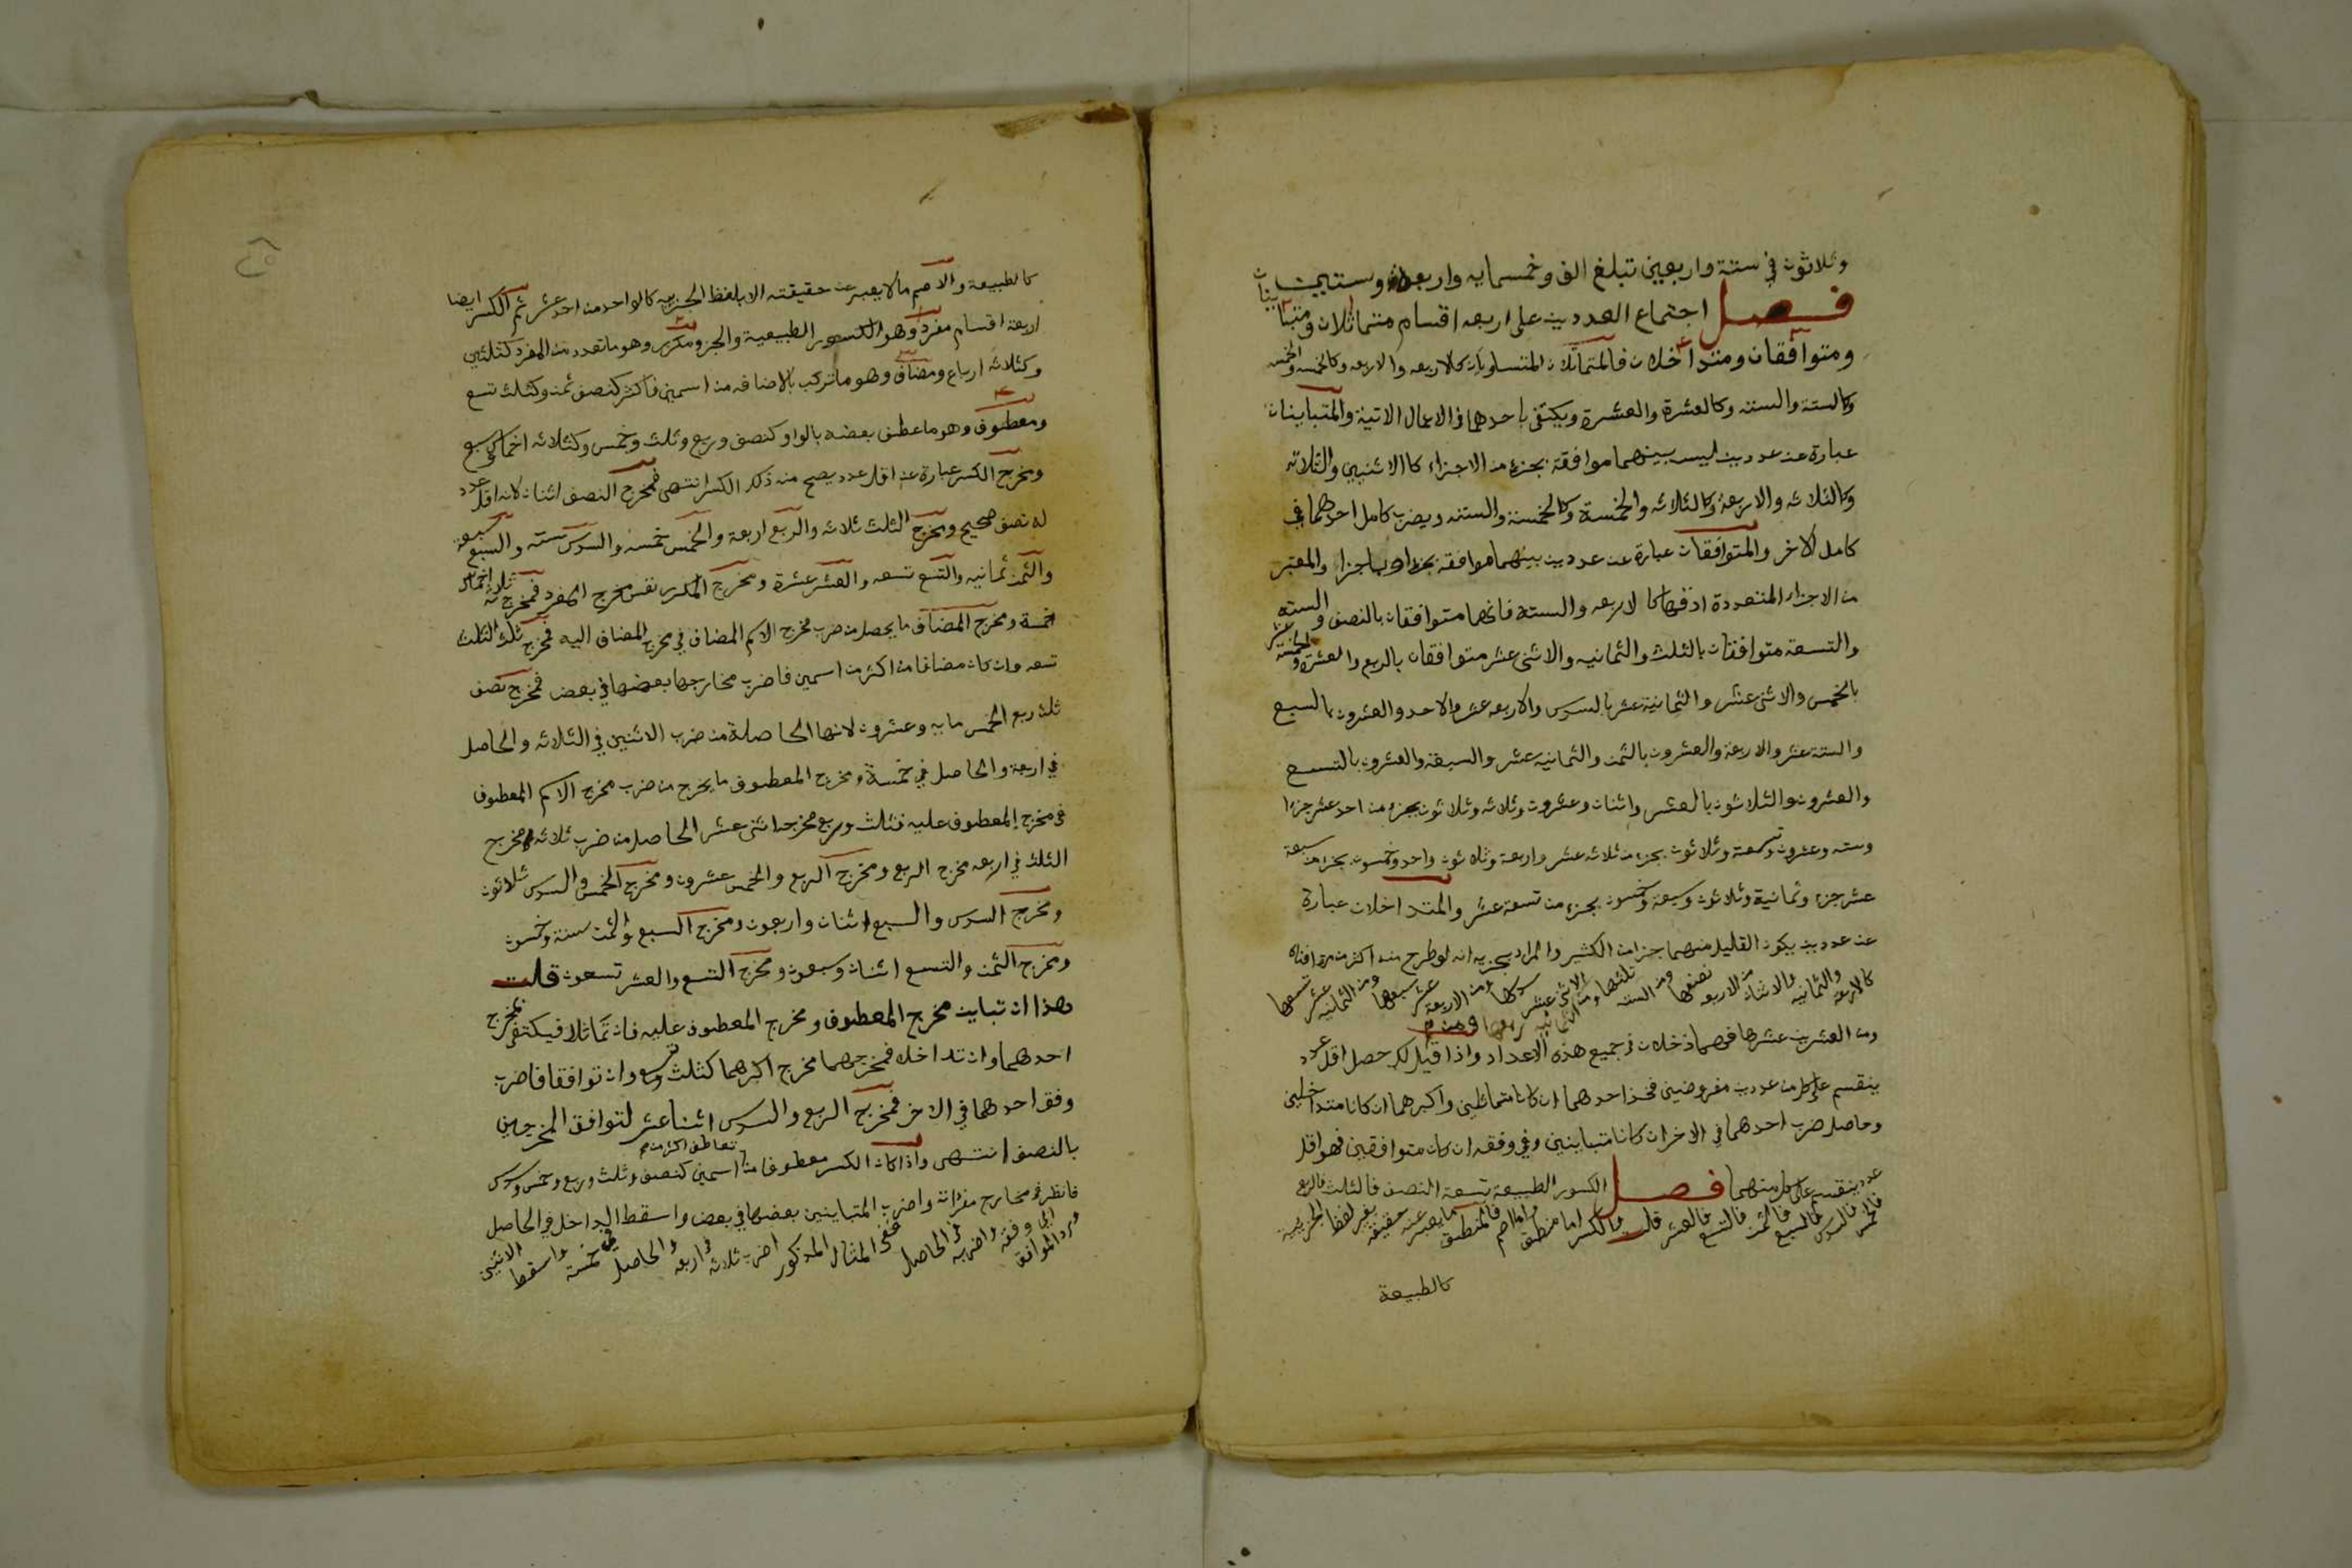 وثلاثون في ستة واربعين تبلغ الف وخمسمايه واربعة وستين
فصل اجتماع العددين على اربعه اقسام متماثلان ومتباينان
ومتوافقان ومتداخلان فالمتماثلان المتساويان كالاربعه والاربعه وكالخمسه والخمسه
وكالستة والسته وكالعشرة والعشرة ويكتفى باحدهما في الاعمال الاتية والمتباينان
عبارة عن عددين ليس بينهما موافقة بجزء من الاجزاء كالاثنين والثلاثه
وكالثلاثه والاربعة وكالثلاثه والخمسة وكالخمسة والسته ويضرب كامل احدهما في
كامل الاخر والمتوافقان عبارة عن عددين بينهما موافقة بجزء او باجزاء والمعتبر
من الاجزاء المتعددة ادقها كالاربعه والستة فانهما متوافقان بالنصف والسته
والتسعة متوافقان بالثلث والثمانيه والاثنى عشر متوافقان بالربع والعشرة والخمسة عشر
بالخمس والاثنى عشر والثمانية عشر بالسدس والاربعه عشر والاحد والعشرون بالسبع
والستة عشر والاربعة والعشرون بالثمن والثمانيه عشر والسبعة والعشرون بالتسع
والعشرون والثلاثون بالعشر واثنان وعشرون وثلاثه وثلاثون بجزء من احد عشر جزءا
وسته وعشرون وتسعة وثلاثون بجزء من ثلاثه عشر واربعة وثلاثون واحد وخمسون بجزء من سبعة
عشر جزء وثمانية وثلاثون وسبعة وخمسون بجزء من تسعة عشر والمتداخلان عبارة
عن عددين يكون القليل منهما جزا من الكثير والمراد بجزيه انه لو طرح منه اكثر من مرة افناه
كالاربعة والثمانيه والاثنان من الاربعه نصفها ومن السته ثلثها ومن الثمانيه ربعها ومن الاثنى عشر سدسها ومن الاربعة عشر سبعها ومن الثمانيه عشر تسعها
ومن العشرين عشرها فهما داخلان في جميع هذه الاعداد واذا قيل لك حصل اقل عدد
ينقسم على كل من عددين مفروضين فخذ احدهما ان كانا متماثلين واكبرهما ان كانا متداخلين
وحاصل ضرب احدهما في الاخر ان كانا متباينين وفي وفقه ان كان متوافقين فهو اقل
عدد ينقسم على كل منهما فصل الكسور الطبيعية تسعة النصف فالثلث فالربع
فالخمس فالسدس فالسبع فالثمن فالتسع فالعشر قلت فالكسر اما منطق واما اصم فالمنطق ما يعبر عنه حقيقة بغير لفظ الجزييه
كالطبيعة
كالطبيعة والاصم ما لا يعبر عن حقيقته الا بلفظ الجزييه كالواحد من احد عشر ثم الكسر ايضا
اربعة اقسام مفرد وهو الكسور الطبيعية والجزء ومكرر وهو ما تعدد من المفرد كثلثين
وكثلاثه ارباع ومضاف وهو ما تركب بالاضافه من اسمين فاكثر كنصف ثمن وكثلث تسع
ومعطوف وهو ما عطف بعضه بالواو كنصف وربع وثلث وخمس وكثلاثه اخماس وسبع
ومخرج الكسر عبارة عن اقل عدد يصح منه ذلك الكسر انتهى فمخرج النصف اثنان لانه اقل عدد
له نصف صحيح ومخرج الثلث ثلاثه والربع اربعة والخمس خمسه والسدس سته والسبع سبعة
والثمن ثمانيه والتسع تسعه والعشر عشرة ومخرج المكرر نفس مخرج المفرد فمخرج ثلاثة اخماس
خمسة ومخرج المضاف ما يحصل من ضرب مخرج الاسم المضاف في مخرج المضاف اليه فمخرج ثلث الثلث
تسعه وان كان مضافا من اكثر من اسمين فاضرب مخارجها بعضها في بعض فمخرج نصف
ثلث ربع الخمس مايه وعشرون لانها الحاصلة من ضرب الاثنين في الثلاثه والحاصل
في اربعة والحاصل في خمسة ومخرج المعطوف ما يخرج من ضرب مخرج الاسم المعطوف
في مخرج المعطوف عليه فثلث وربع مخرجه اثنى عشر الحاصل من ضرب ثلاثه مخرج
الثلث في اربعه مخرج الربع ومخرج الربع والخمس عشرون ومخرج الخمس والسدس ثلاثون
ومخرج السدس والسبع اثنان واربعون ومخرج السبع والثمن ستة وخمسون
ومخرج الثمن والتسع اثنان وسبعون ومخرج التسع والعشر تسعون قلت
هذا ان تباين مخرج المعطوف ومخرج المعطوف عليه فان تماثلا فيكتفى بمخرج
احدهما وان تداخلا فمخرجهما مخرج اكبرهما كثلث وتسع وان توافقا فاضرب
وفق احدهما في الاخر فمخرج الربع والسدس اثنا عشر لتوافق المخرجين
بالنصف انتهى واذا كان الكسر معطوفا من اسمين كنصف وثلث وربع وخمس وسدس
فانظر في مخارج مفرداته واضرب المتباينين بعضها في بعض واسقط الداخل في الحاصل
ورد الموافق الى وفقه واضربه في الحاصل ففي المثال المذكور اضرب ثلاثه في اربعه والحاصل في خمسة واسقط الاثنين